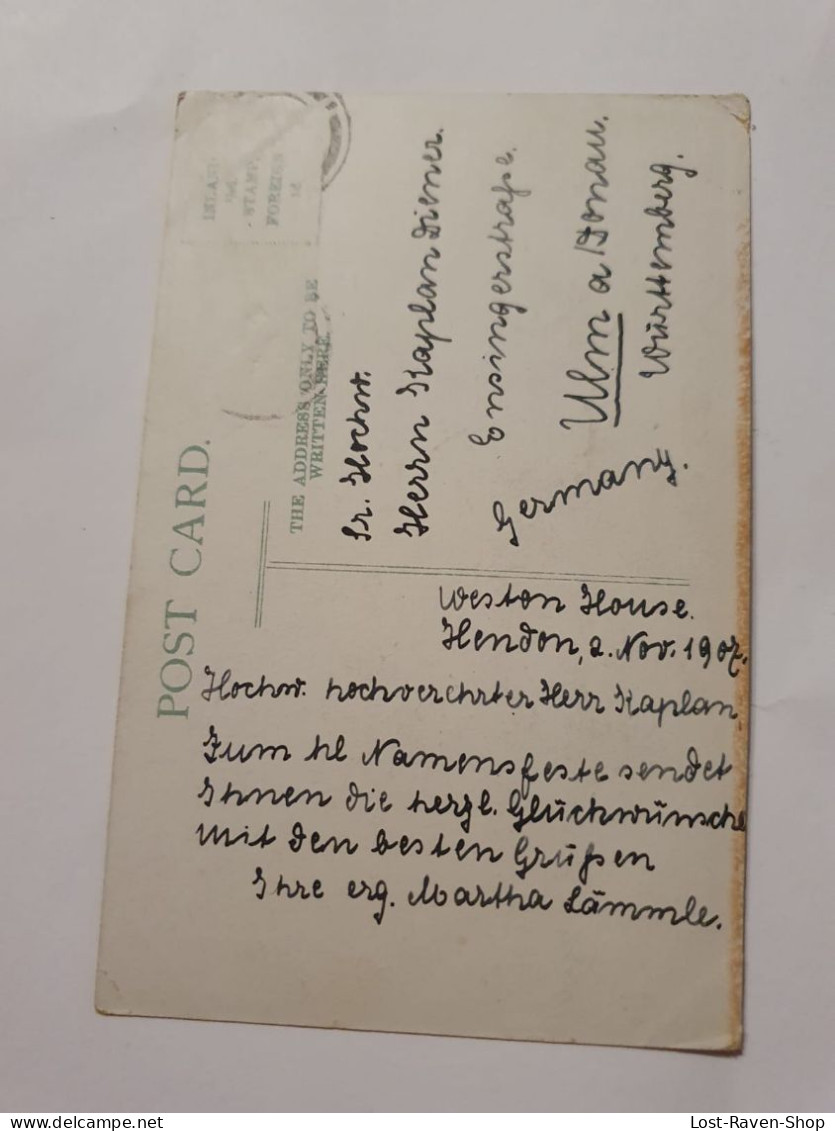 POST CARD.
THE ADDRESS ONLY TO BE
WRITTEN HERE.
INLAND
STAMP
FOREIGN
Sr. Hochw.
Herrn Kaplan Diener.
Ensingerstraße.
Ulm a Donau.
Württemberg.
Germany.
Weston House.
Hendon, 2. Nov. 1907.
Hochw. hochverehrter Herr Kaplan,
Zum hl Namensfeste sendet
Ihnen die herzl. Glückwünsche
mit den besten Grüßen
Ihre erg. Martha Lämmle.
Lost-Raven-Shop